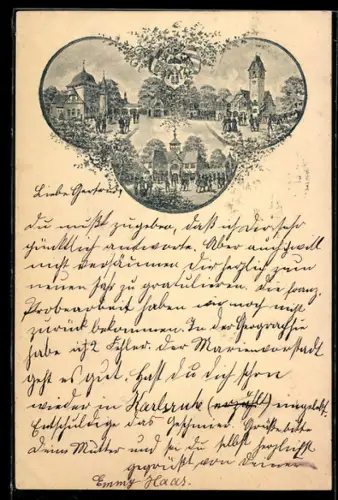 Liebe Gertrud,
Du mußt zugeben, daß ich Dir sehr
pünktlich antworte. Aber auch will
nicht versäumen Dir herzlich zum
neuen Jahr zu gratulieren. Die franz.
Probearbeit haben wir noch nicht
zurück bekommen. In der Geographie
habe ich 2 Fehler. Der Marienvorstadt
geht es gut. Hast Du Dich schon
wieder in Karlsruhe (erzählt) eingelebt.
Entschuldige das Geschmier. Grüße bitte
Deine Mutter und sei Du selbst herzlichst
gegrüßt von Deiner
Emmy Haas.